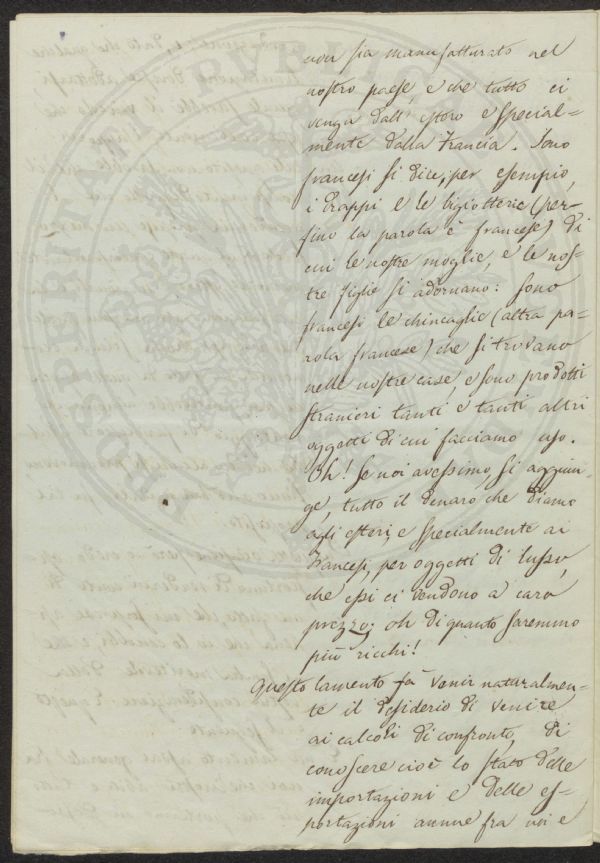 non sia manufatturato nel
nostro paese, e che tutto ci
venga dall' estero e special-
mente dalla Francia. Sono
francesi si dice, per esempio,
i drappi e le bigiotterie (per-
fino la parola è francese) di
cui le nostre moglie, e le nos-
tre figlie si adornano: sono
francesi le chincaglie (altra pa-
rola francese) che si trovano
nelle nostre case, e sono prodotti
stranieri tanti e tanti altri
oggetti di cui facciamo uso.
Oh! Se noi avessimo, si aggiun-
ge, tutto il denaro che diamo
agli esteri, e specialmente ai
Francesi, per oggetti di lusso,
che essi ci vendono a caro
prezzo; oh di quanto saremmo
più ricchi!
Questo lamento fa venir naturalmen-
te il desiderio di venire
ai calcoli di confronto, di
conoscere cioè lo stato delle
importazioni e delle es-
portazioni annue fra noi e